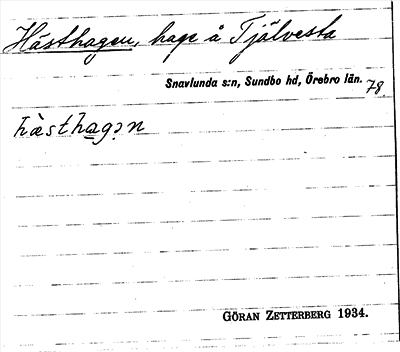 Hästhagen, hage å Tjälvesta
Snavlunda s:n, Sundbo hd, Örebro län.
78.
hàsthagən
GÖRAN ZETTERBERG 1934.